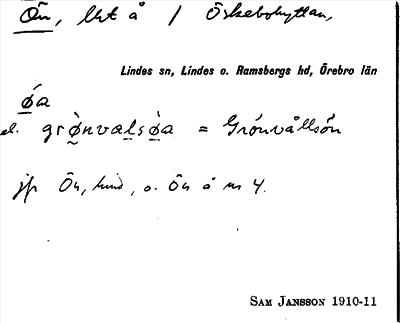 Ön, lht å / Öskebohyttan,
Lindes sn, Lindes o. Ramsbergs hd, Örebro län
ǿa
el. grø̀nvalsø̀a = Grönvållsön
jfr Ön, hmd, o. Ön å nr 4.
SAM JANSSON 1910-11